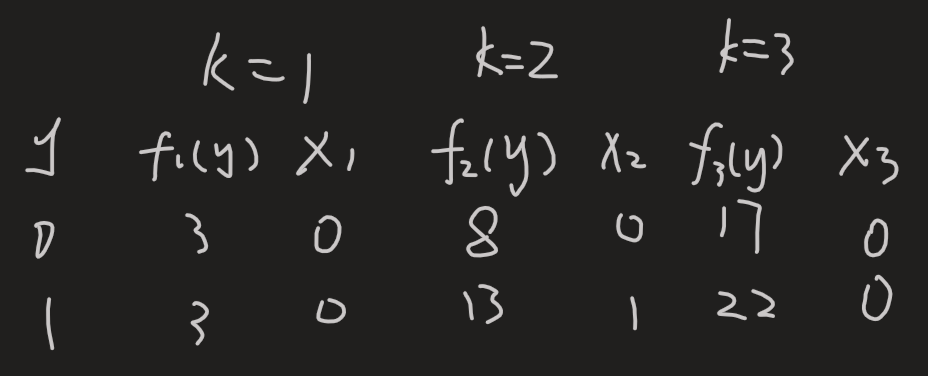 k=1 k=2 k=3
y f₁(y) x₁ f₂(y) x₂ f₃(y) x₃
0 3 0 8 0 17 0
1 3 0 13 1 22 0